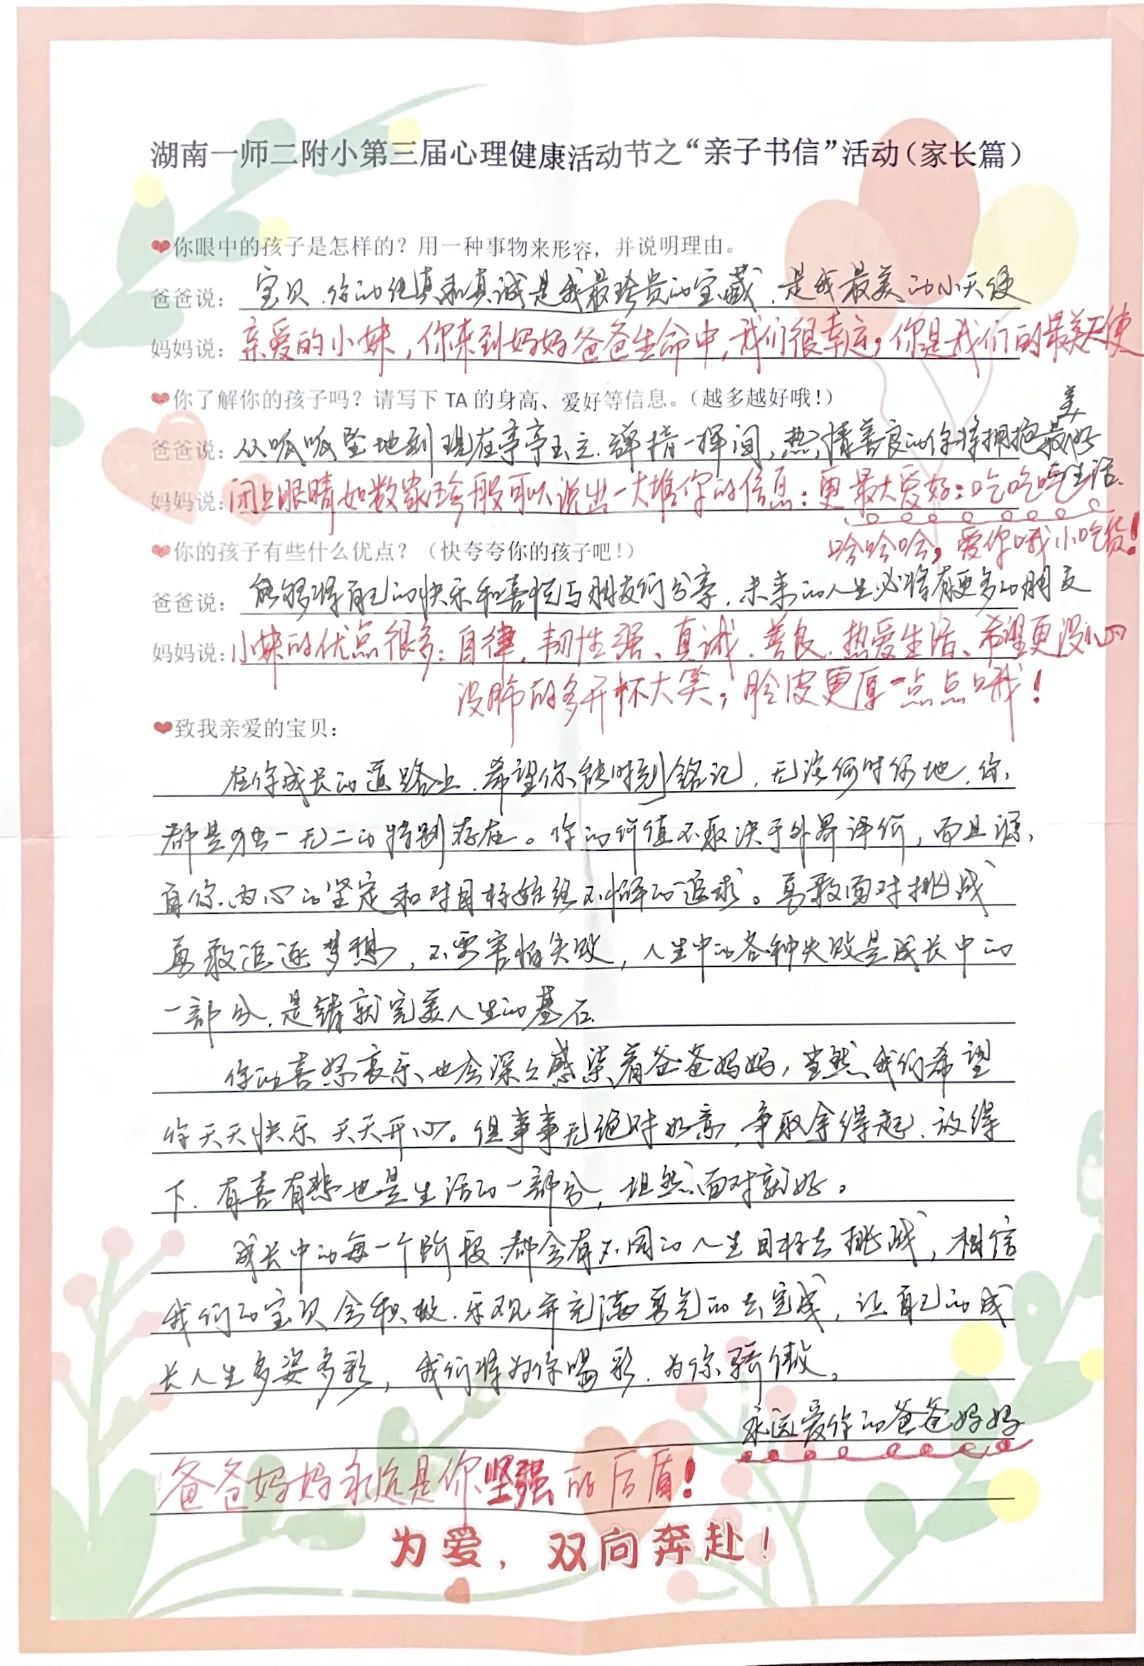 湖南一师二附小第三届心理健康活动节之“亲子书信”活动（家长篇）
❤你眼中的孩子是怎样的？用一种事物来形容，并说明理由。
爸爸说：宝贝，你的纯真和真诚是我最珍贵的宝藏，是我最美的小天使
妈妈说：亲爱的小妹，你来到妈妈爸爸生命中，我们很幸运，你是我们的最美天使
❤你了解你的孩子吗？请写下 TA 的身高、爱好等信息。（越多越好哦！）
爸爸说：从呱呱坠地到现在亭亭玉立，弹指一挥间，热情善良的你将拥抱最美好
妈妈说：闭上眼睛如数家珍般可以说出一大堆你的信息：更最大爱好：吃吃吃
生活.
哈哈哈，爱你哦小吃货！
❤你的孩子有些什么优点？（快夸夸你的孩子吧！）
爸爸说：能够将自己的快乐和喜悦与朋友们分享，未来的人生必将有更多的朋友
妈妈说：小妹的优点很多：自律、韧性强、真诚、善良、热爱生活、希望更没心
没肺的多开怀大笑，脸皮更厚一点点哦！
❤致我亲爱的宝贝：
在你成长的道路上，希望你能时刻铭记，无论何时何地，你，
都是独一无二的特别存在。你的价值不取决于外界评价，而且源，
自你内心的坚定和对目标始终不懈的追求。勇敢面对挑战
勇敢追逐梦想，不要害怕失败，人生中的各种失败是成长中的
一部分，是铸就完美人生的基石
你的喜怒哀乐也会深深感染着爸爸妈妈，当然我们希望
你天天快乐 天天开心。但事事无绝对如意，争取拿得起、放得
下，有喜有悲也是生活的一部分，坦然面对就好。
成长中的每一个阶段都会有不同的人生目标去挑战，相信
我们的宝贝会积极、乐观并充满勇气的去完成，让自己的成
长人生多姿多彩，我们将为你喝彩，为你骄傲。
永远爱你的爸爸妈妈
爸爸妈妈永远是你坚强的后盾！
为爱，双向奔赴！